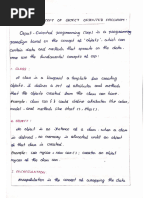 CONCEPT OF OBJECT ORIENTED PROGRAM:
Object-Oriented programming (OOP) is a programming
paradigm based on the concept of "objects", which can
contain data and methods that operate on the data.
are the fundamental concepts of oop.
1. CLASS:
A class is a blueprint or template for creating
objects. It defines a set of attributes and methods
that the created objects can have.
Example: Class Car {} could define attributes like color,
model, and methods like start (), stop ().
2. OBJECT:
An object is an instance of a class. when a class
is defined no memory is allocated until an object
of that class is created.
Example:
object of the class car.
3. ENCAPSULATION:
Encapsulation is the concept of wrapping the data